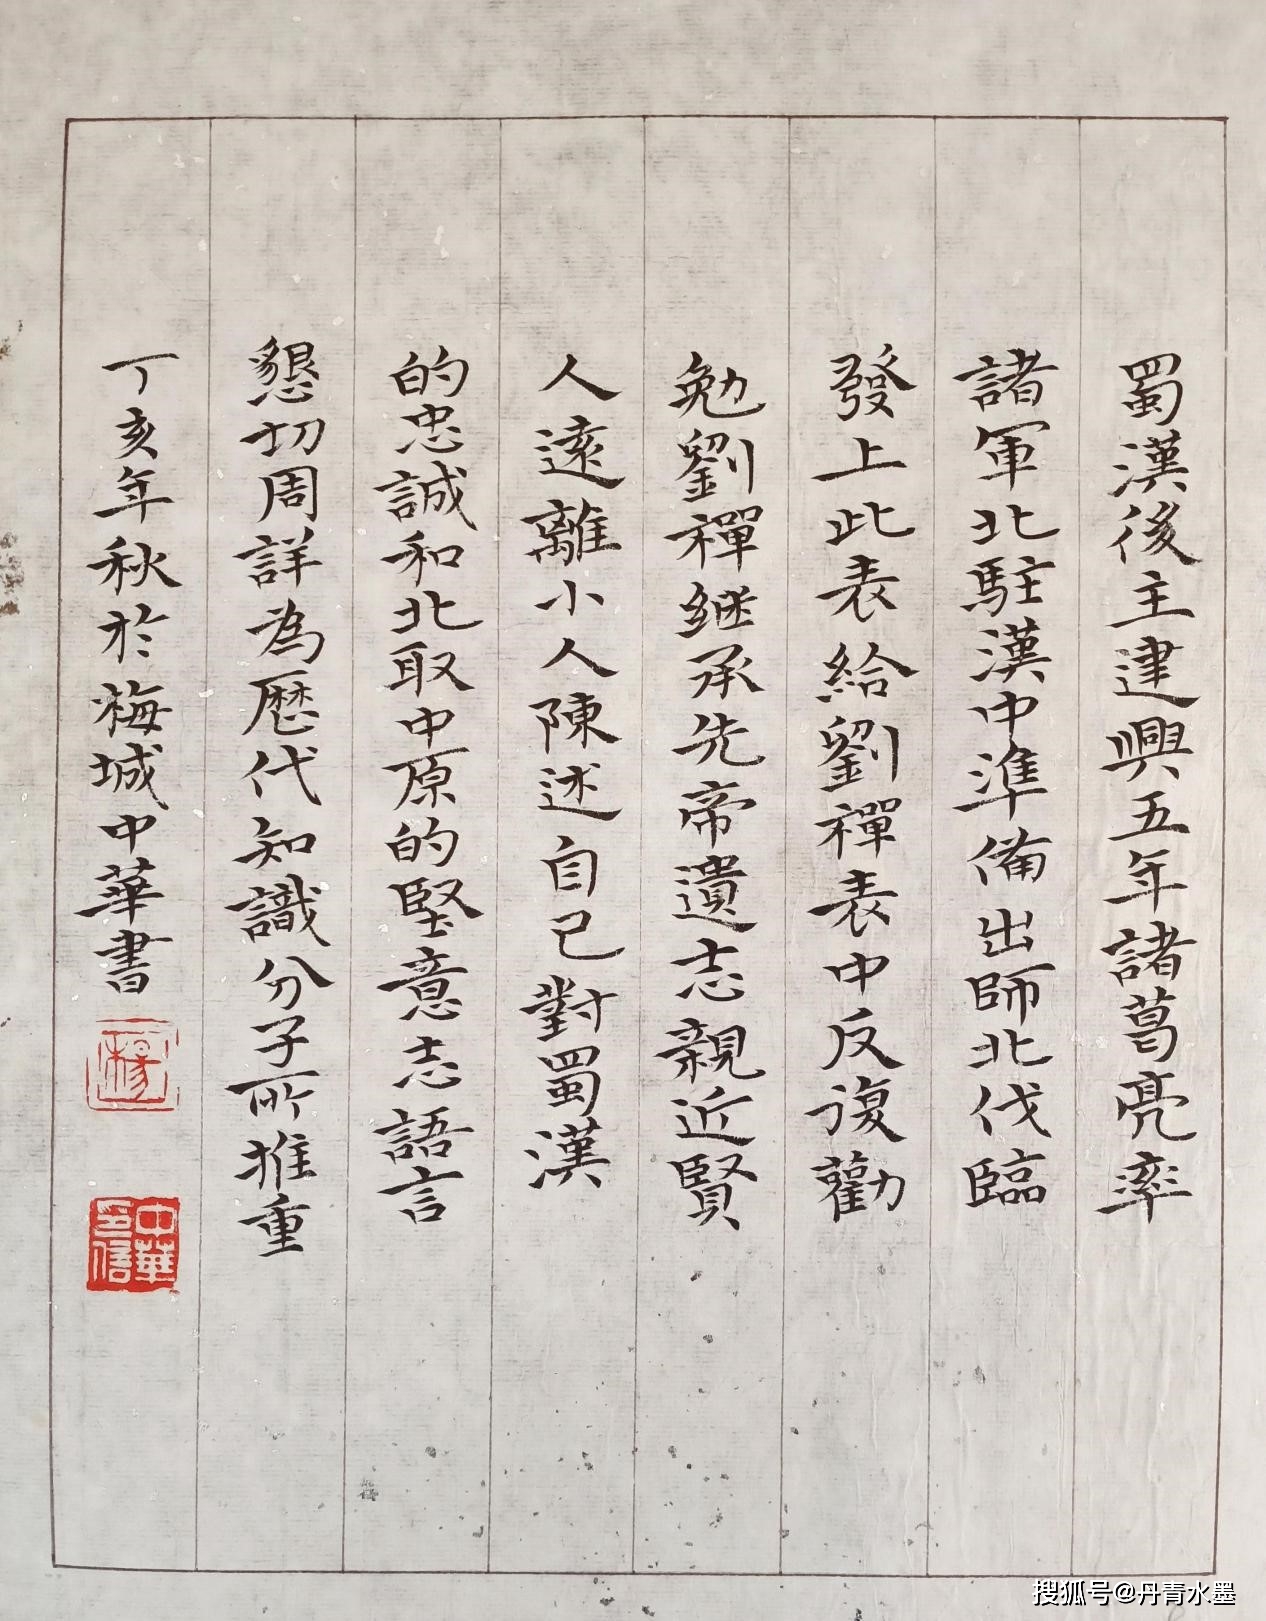 蜀漢後主建興五年諸葛亮率
諸軍北駐漢中準備出師北伐臨
發上此表給劉禪表中反復勸
勉劉禪继承先帝遺志親近賢
人遠離小人陳述自己對蜀漢
的忠誠和北取中原的堅意志語言
懇切周詳為歷代知識分子所推重
丁亥年秋於梅城中華書
中華
印信
搜狐号@丹青水墨